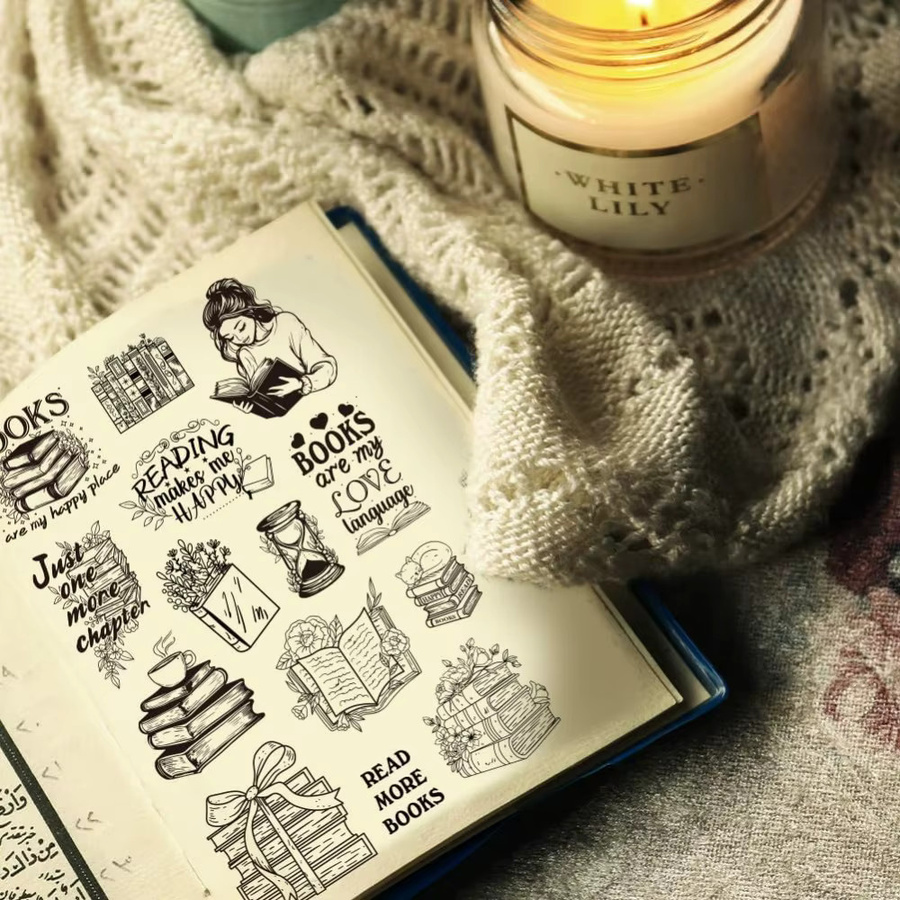 ·WHITE·
LILY
BOOKS
are my happy place
READING
makes me
HAPPY
BOOKS
are my
LOVE
language
Just
one
more
chapter
BOOKS
READ
MORE
BOOKS